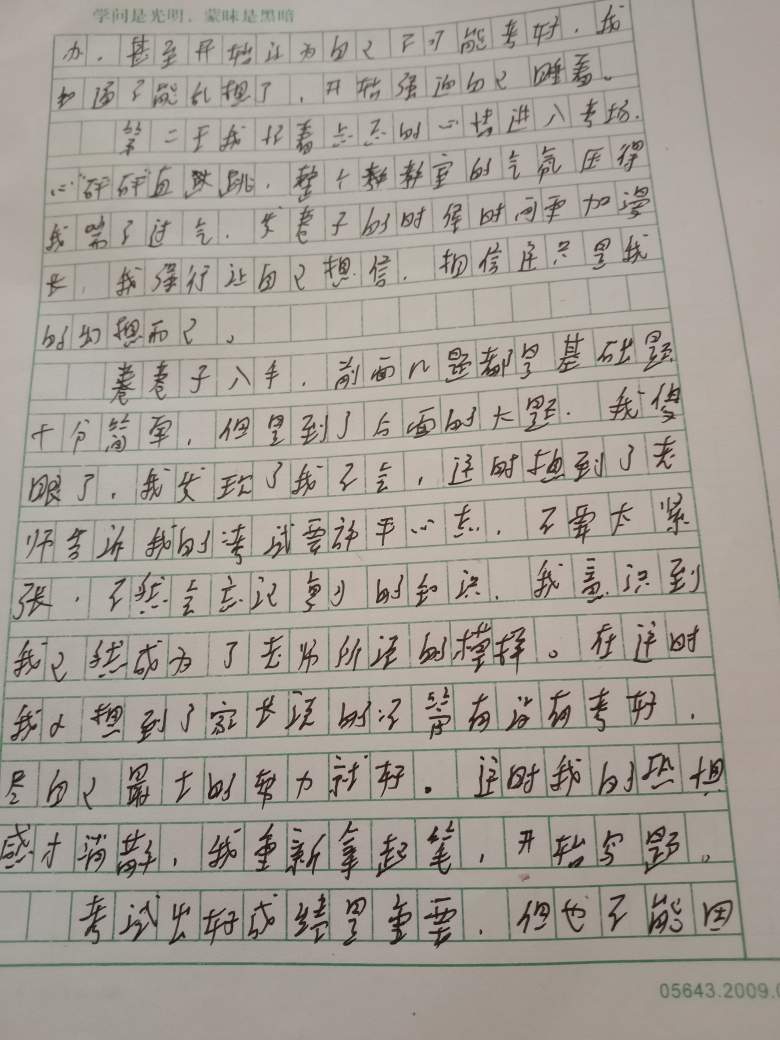 学问是光明，蒙昧是黑暗
办，甚至开始认为自己不可能考好，我
知道不能乱想了，开始强迫自己睡着。
第二天我怀着忐忑的心情进入考场.
心"砰砰"直跳，整个教室的气氛压得
我喘不过气，发卷子的时候时间更加漫
长，我强行让自己相信，相信这只是我
的幻想而已。
卷子入手，前面几题都是基础题
十分简单，但是到了后面的大题，我傻
眼了，我发现了我不会，这时想到了老
师告诉我的考试要放平心态，不要太紧
张，不然会忘记复习的知识，我意识到
我已然成为了老师所说的模样。在这时
我又想到了家长说的没管有没有考好，
尽自己最大的努力就好。这时我的恐惧
感才消散，我重新拿起笔，开始写题。
考试出好成绩是重要，但也不能因
05643.2009.0